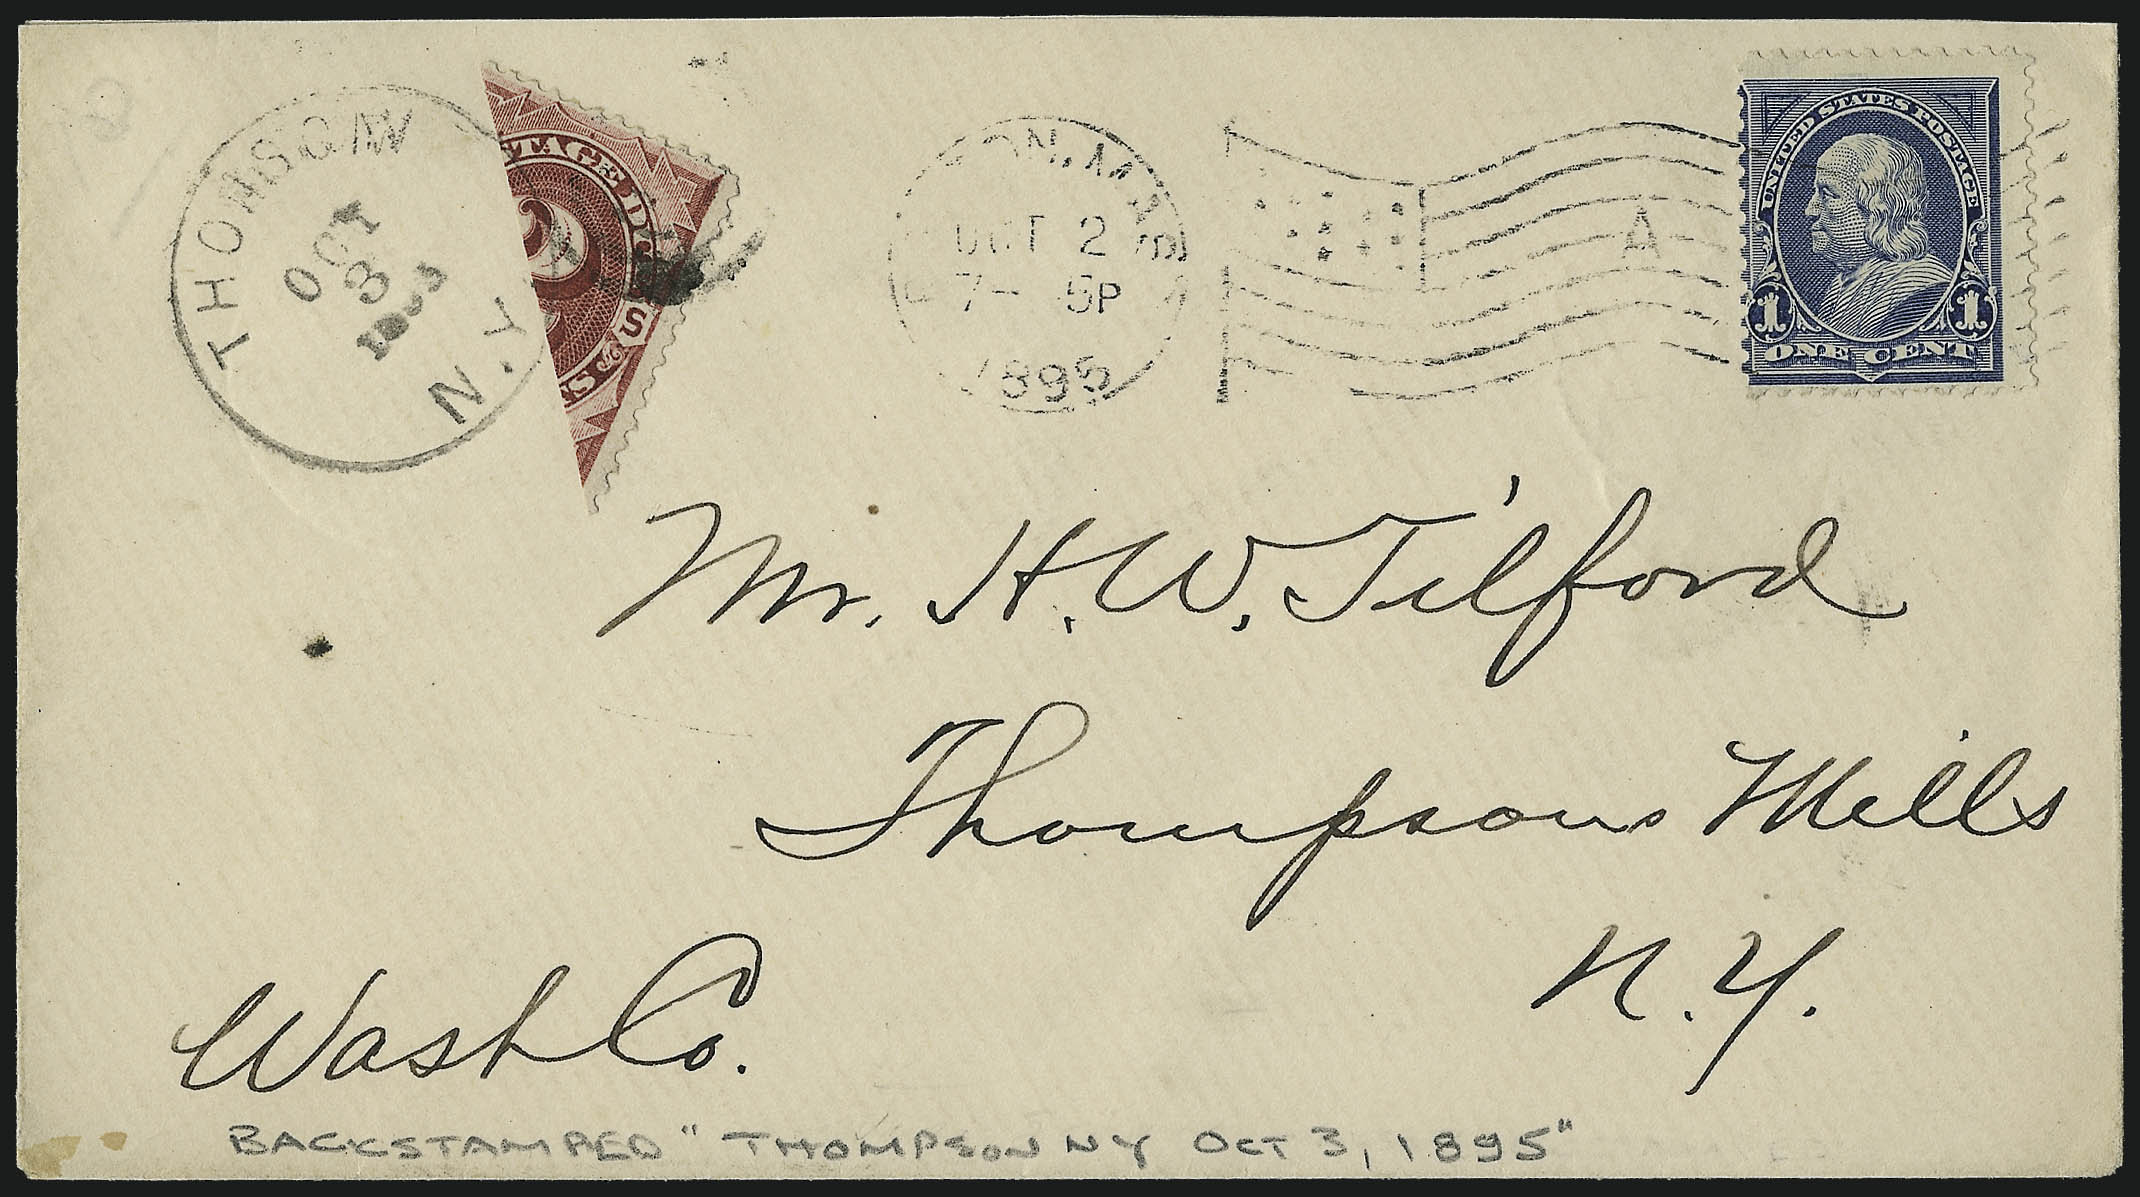 THOMSON
OCT
3
N.Y.
TAGE D
2
S
TS
ON, MA
OCT 2
7- 5P
1895
A
UNITED STATES POSTAGE
1 1
ONE CENT
Mr. H. W. Tilford
Thompsons Mills
N. Y.
Wash Co.
BACKSTAMPED "THOMPSON NY OCT 3, 1895"